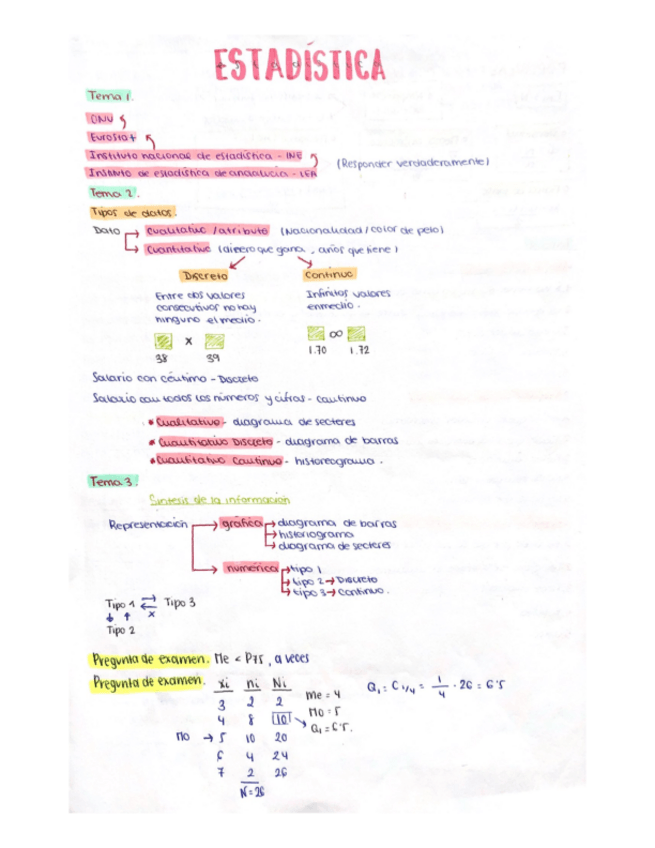 ESTADÍSTICA
Tema 1.
ONU
Eurostat
Instituto nacional de estadística - INE
(Responder verdaderamente)
Instituto de estadística de andalucía - IEA
Tema 2.
Tipos de datos.
Dato
Cualitativo / atributo (Nacionalidad / color de pelo)
Cuantitativo (dinero que gana, años que tiene)
Discreto
Continuo
Entre dos valores
consecutivos no hay
ninguno el medio.
Infinitos valores
enmedio.
x
∞
38 39
1.70 1.72
Salario con céntimo - Discreto
Salario con todos los números y cifras - continuo
* Cualitativo - diagrama de sectores
* Cuantitativo Discreto - diagrama de barras
* Cuantitativo Continuo - historeograma.
Tema 3.
Síntesis de la información
Representación → gráfica → diagrama de barras
→ histiograma
→ diagrama de sectores
→ numérica → tipo 1
→ tipo 2 → Discreto
→ tipo 3 → continuo.
Tipo 1 ⇄ Tipo 3
↓ ↑ x
Tipo 2
Pregunta de examen. Me < P75, a veces
Pregunta de examen. xi ni Ni
3 2 2
4 8 10
Mo → 5 10 20
6 4 24
7 2 26
N = 26
Me = 4
Mo = 5
Q₁ = 6'5.
Q₁ = C 1/4 = 1/4 · 26 = 6'5